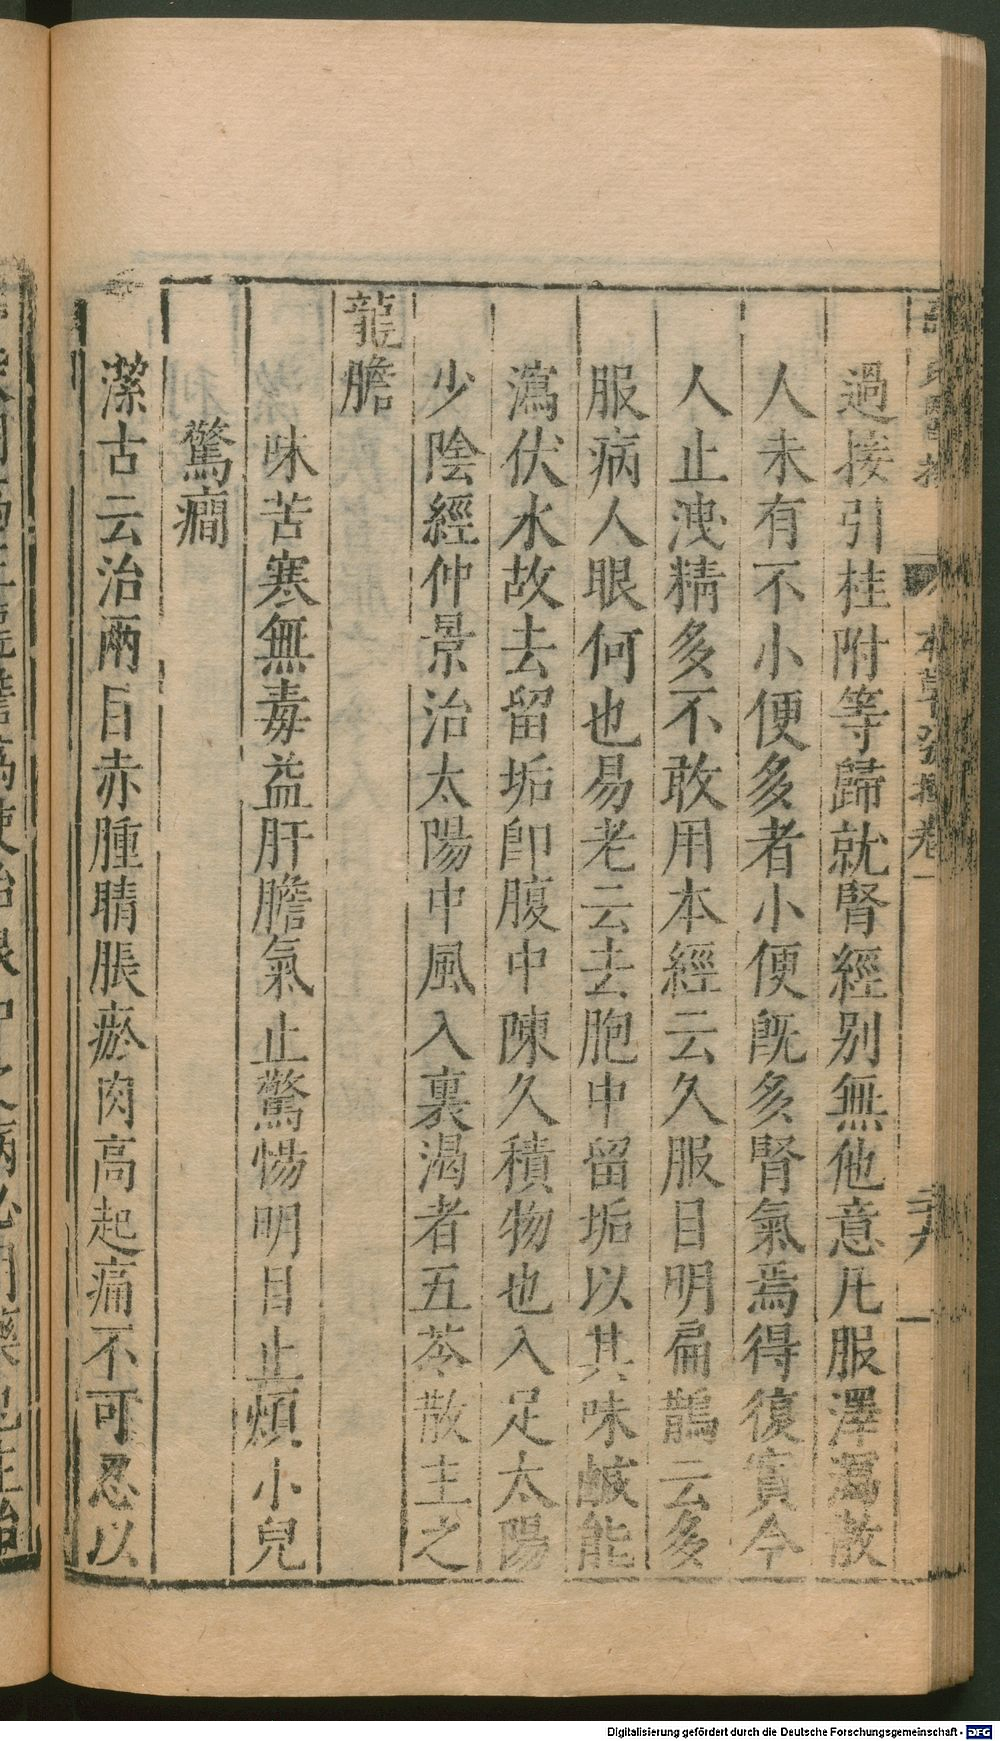 本草發揮卷一
過接引桂附等歸就腎經别無他意凡服澤瀉散
人未有不小便多者小便旣多腎氣焉得復實今
人止洩精多不敢用本經云久服目明扁鵲云多
服病人眼何也易老云去胞中留垢以其味鹹能
瀉伏水故去留垢卽腹中陳久積物也入足太陽
少陰經仲景治太陽中風入裏渴者五苓散主之
龍膽
味苦寒無毒益肝膽氣止驚惕明目止煩小兒
驚癇
潔古云治兩目赤腫睛脹瘀肉高起痛不可忍以
Digitalisierung gefördert durch die Deutsche Forschungsgemeinschaft - DFG